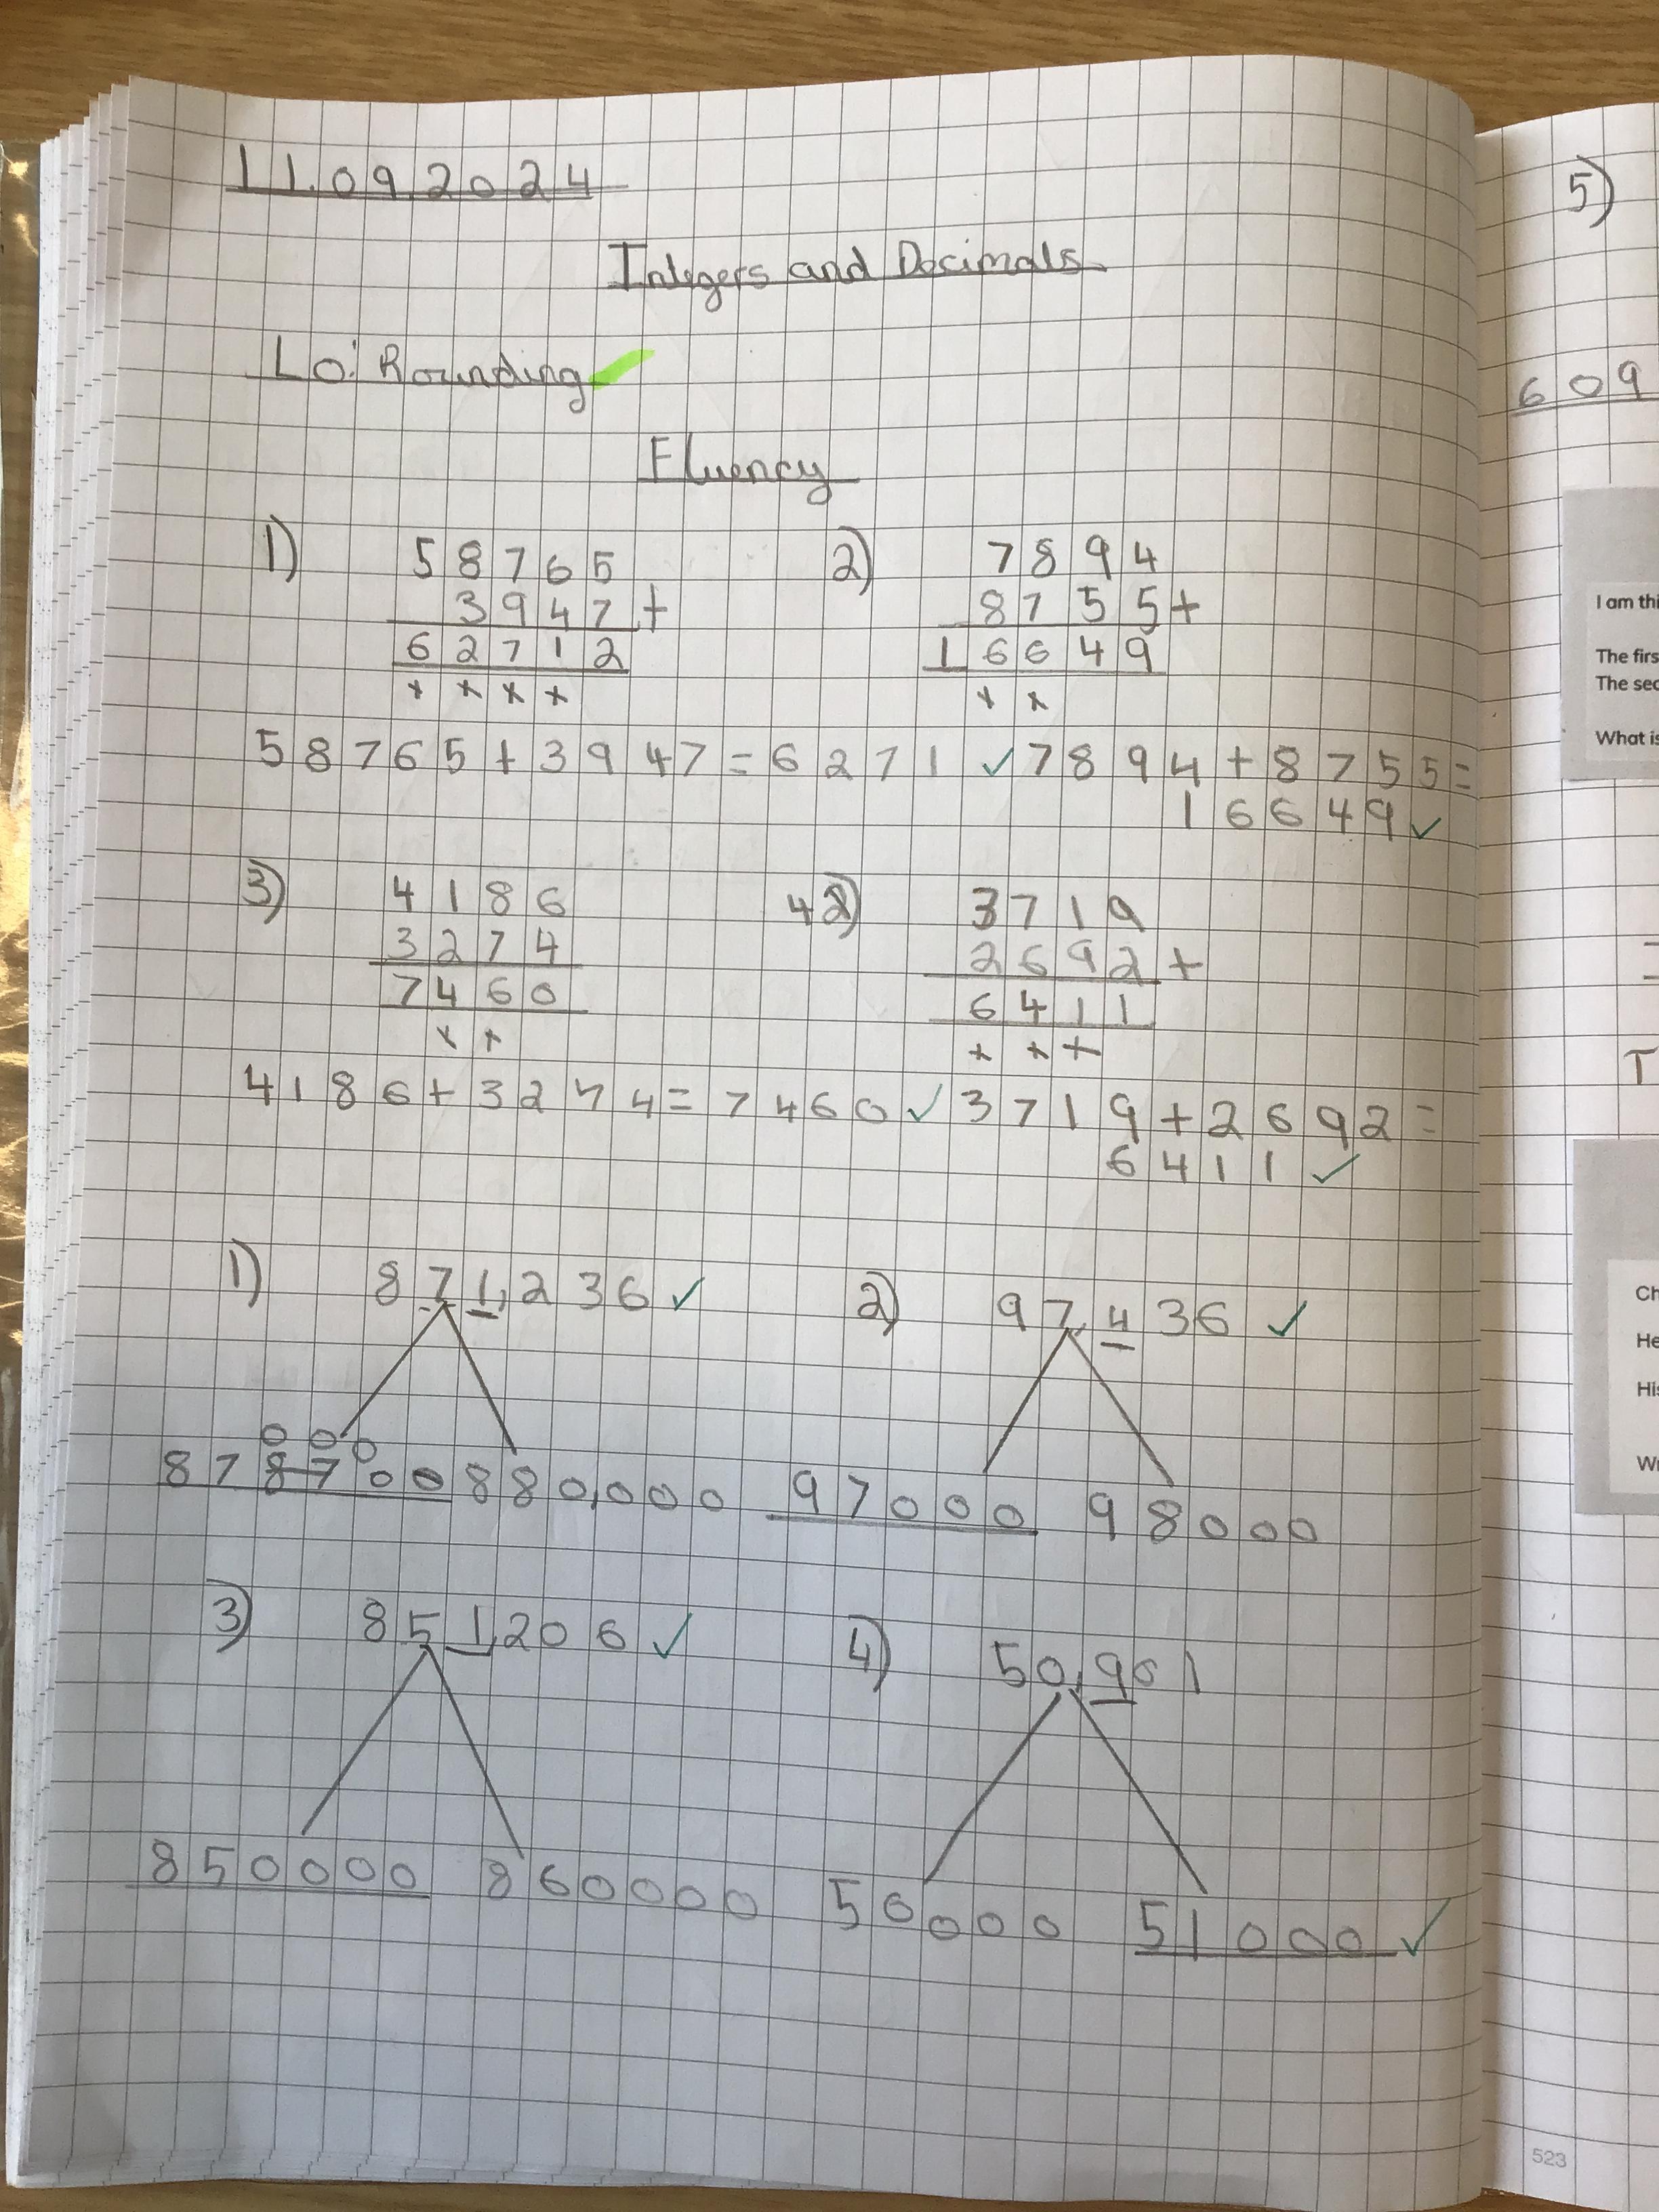 11.09.2024
Integers and Decimals
LO: Rounding
Fluency
1) 58765
3947+
62712
2) 7894
8755+
16649
58765+3947=6271
7894+8755=
16649
3) 4186
3274
7460
4) 3719
2692+
6411
4186+3274=7460
3719+2692=
6411
1) 871,236
000
878700 880,000
2) 97,436
97000 98000
3) 851,206
850000 860000
4) 50,961
50000 51000
5)
609
I am thi
The firs
The sec
What is
T
Ch
He
His
Wr
523